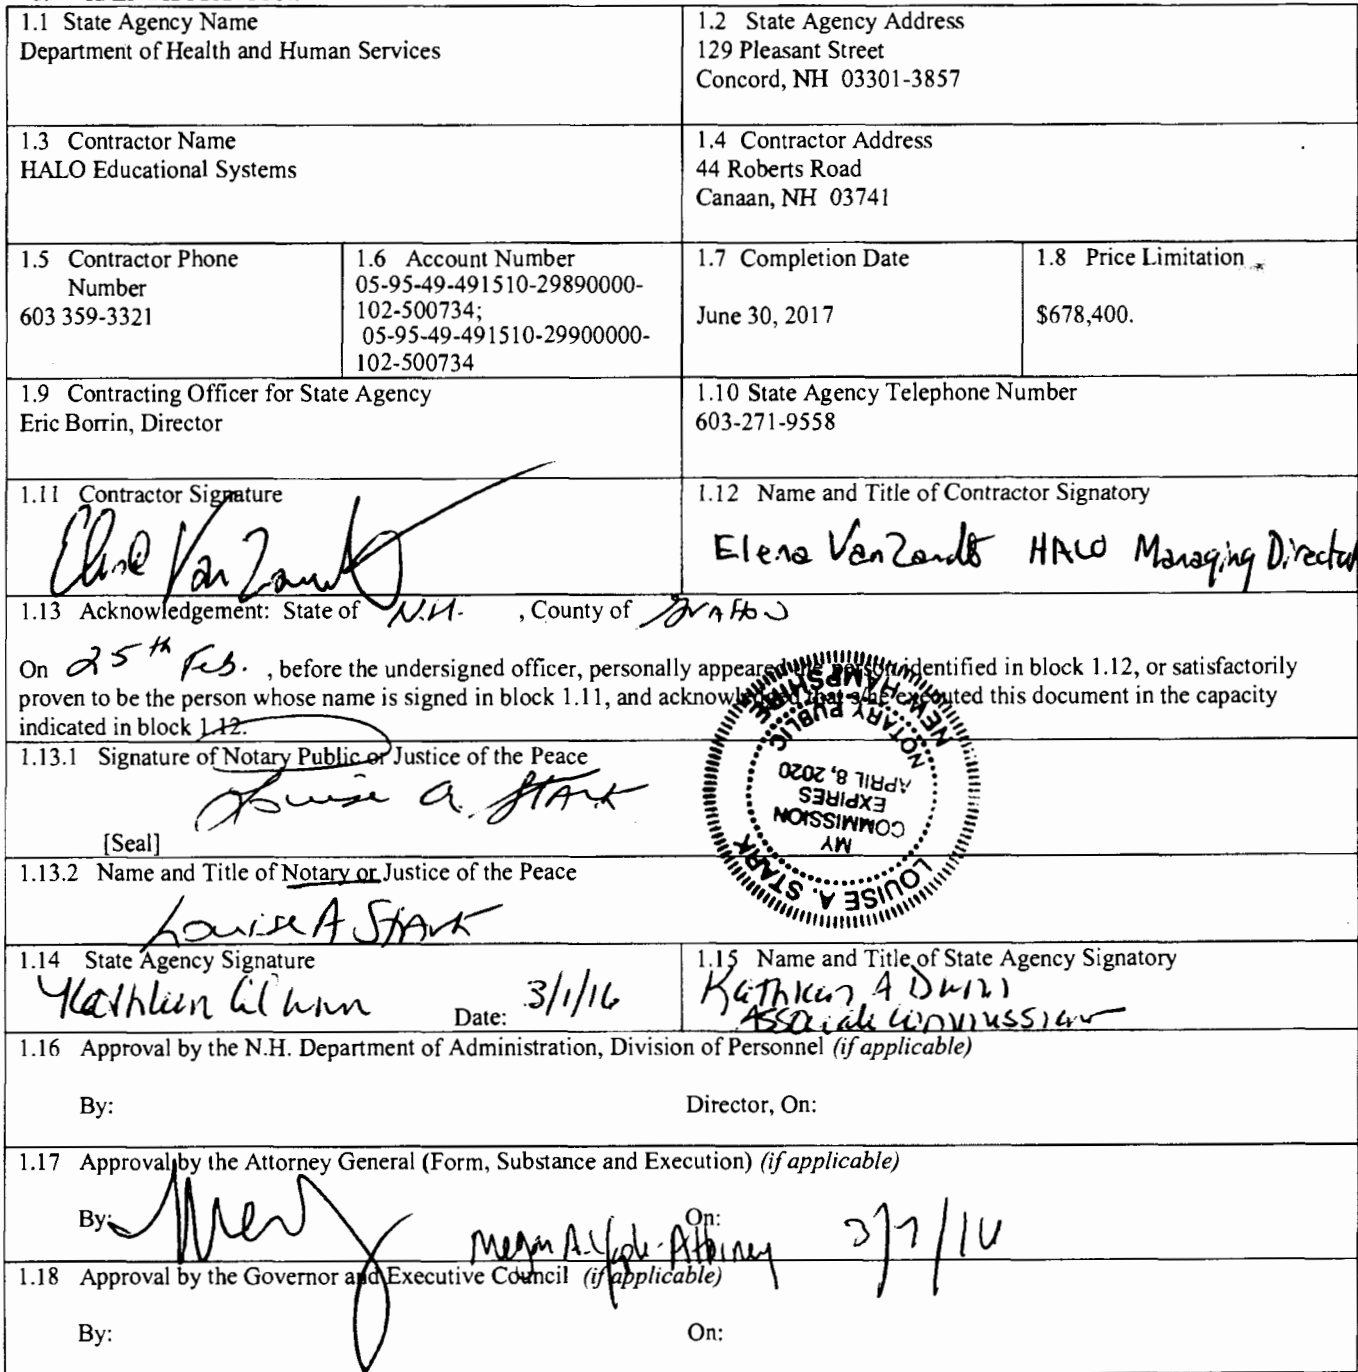 1.1 State Agency Name
Department of Health and Human Services
1.2 State Agency Address
129 Pleasant Street
Concord, NH 03301-3857
1.3 Contractor Name
HALO Educational Systems
1.4 Contractor Address
44 Roberts Road
Canaan, NH 03741
1.5 Contractor Phone
Number
603 359-3321
1.6 Account Number
05-95-49-491510-29890000-
102-500734;
05-95-49-491510-29900000-
102-500734
1.7 Completion Date
June 30, 2017
1.8 Price Limitation
$678,400.
1.9 Contracting Officer for State Agency
Eric Borrin, Director
1.10 State Agency Telephone Number
603-271-9558
1.11 Contractor Signature
1.12 Name and Title of Contractor Signatory
Elena VanZandt HALO Managing Director
1.13 Acknowledgement: State of N.H. , County of Grafton
On 25th Feb. , before the undersigned officer, personally appeared the person identified in block 1.12, or satisfactorily
proven to be the person whose name is signed in block 1.11, and acknowledged that s/he executed this document in the capacity
indicated in block 1.12.
1.13.1 Signature of Notary Public or Justice of the Peace
Louise A. Stark
[Seal]
LOUISE A. STARK
MY
COMMISSION
EXPIRES
APRIL 8, 2020
NOTARY PUBLIC
NEW HAMPSHIRE
1.13.2 Name and Title of Notary or Justice of the Peace
Louise A Stark
1.14 State Agency Signature
Date: 3/1/16
1.15 Name and Title of State Agency Signatory
Kathleen A Dunn
Associate Commissioner
1.16 Approval by the N.H. Department of Administration, Division of Personnel (if applicable)
By:
Director, On:
1.17 Approval by the Attorney General (Form, Substance and Execution) (if applicable)
By:
Megan A. - Attorney
On: 3/7/16
1.18 Approval by the Governor and Executive Council (if applicable)
By:
On: